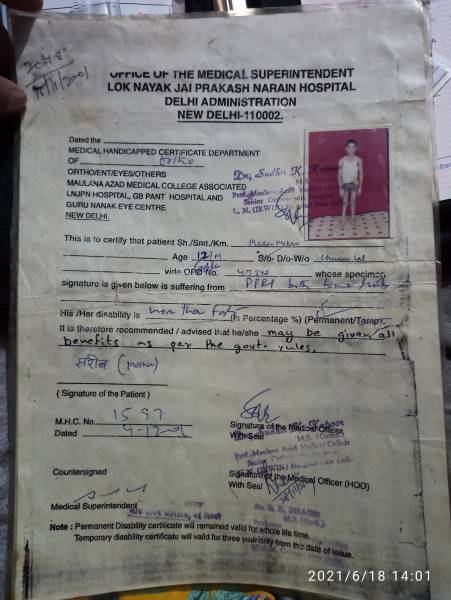 2048
15/11/2001
OFFICE OF THE MEDICAL SUPERINTENDENT
LOK NAYAK JAI PRAKASH NARAIN HOSPITAL
DELHI ADMINISTRATION
NEW DELHI-110002.
Dated the
MEDICAL HANDICAPPED CERTIFICATE DEPARTMENT
OF ortho
ORTHO/ENT/EYES/OTHERS
MAULANA AZAD MEDICAL COLLEGE ASSOCIATED
LNJPN HOSPITAL, GB PANT HOSPITAL AND
GURU NANAK EYE CENTRE
NEW DELHI
Dr. Sudhir K. Kapoor
Prof. Maulana Azad
Senior Orthopaedic Surgeon
L. N. (IRWIN) Hospital New Delhi
This is to certify that patient Sh./Smt./Km. Madan Mohan
Age 12/M S/o- D/o-W/o
vide OPD No. 47342 whose specimen
signature is given below is suffering from PPRP both lower limbs
His /Her disability is more than forty (In Percentage %) (Permanent/Temp.
It is therefore recommended / advised that he/she may be given all
benefits as per the govt. rules.
(Mother)
( Signature of the Patient )
M.H.C. No. 1597
Dated
Signature of the Medical Officer
With Seal
Dr. Sudhir K. Kapoor
M.S. (Ortho)
Prof. Maulana Azad Medical College
Senior
(IRWIN) Hospital New Delhi
Countersigned
Signature of the Medical Officer (HOD)
With Seal
Medical Superintendent
Note : Permanent Disability certificate will remained valid for whole life time.
Temporary disability certificate will valid for three year only from the date of issue.
2021/6/18 14:01